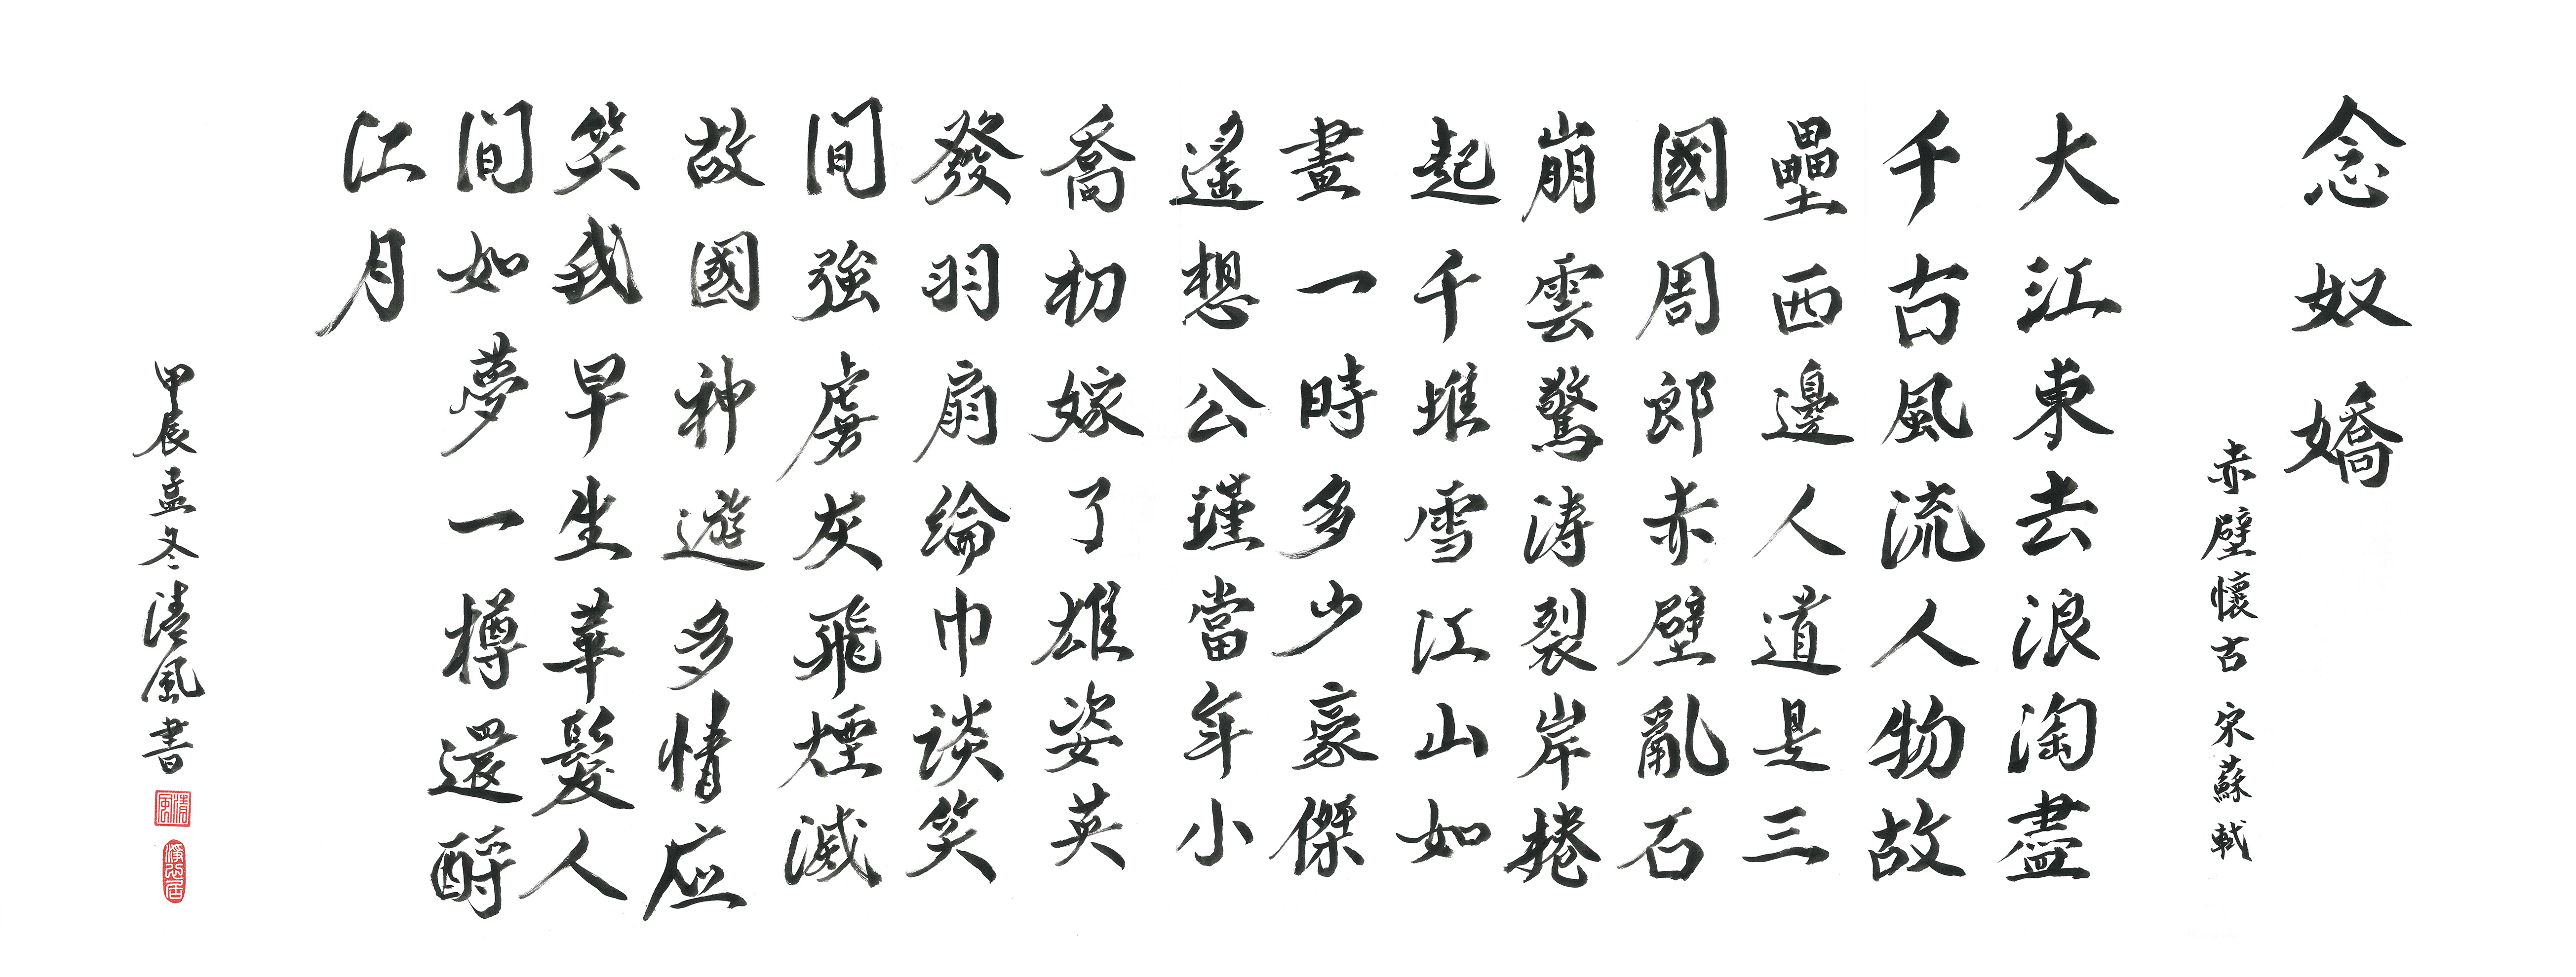 念奴嬌
赤壁懷古 宋 蘇軾
大江東去浪淘盡
千古風流人物故
壘西邊人道是三
國周郎赤壁亂石
崩雲驚涛裂岸捲
起千堆雪江山如
畫一時多少豪傑
遙想公瑾當年小
喬初嫁了雄姿英
發羽扇綸巾談笑
間強虜灰飛煙滅
故國神遊多情应
笑我早生華髮人
間如夢一樽還酹
江月
甲辰孟冬清風書
清風